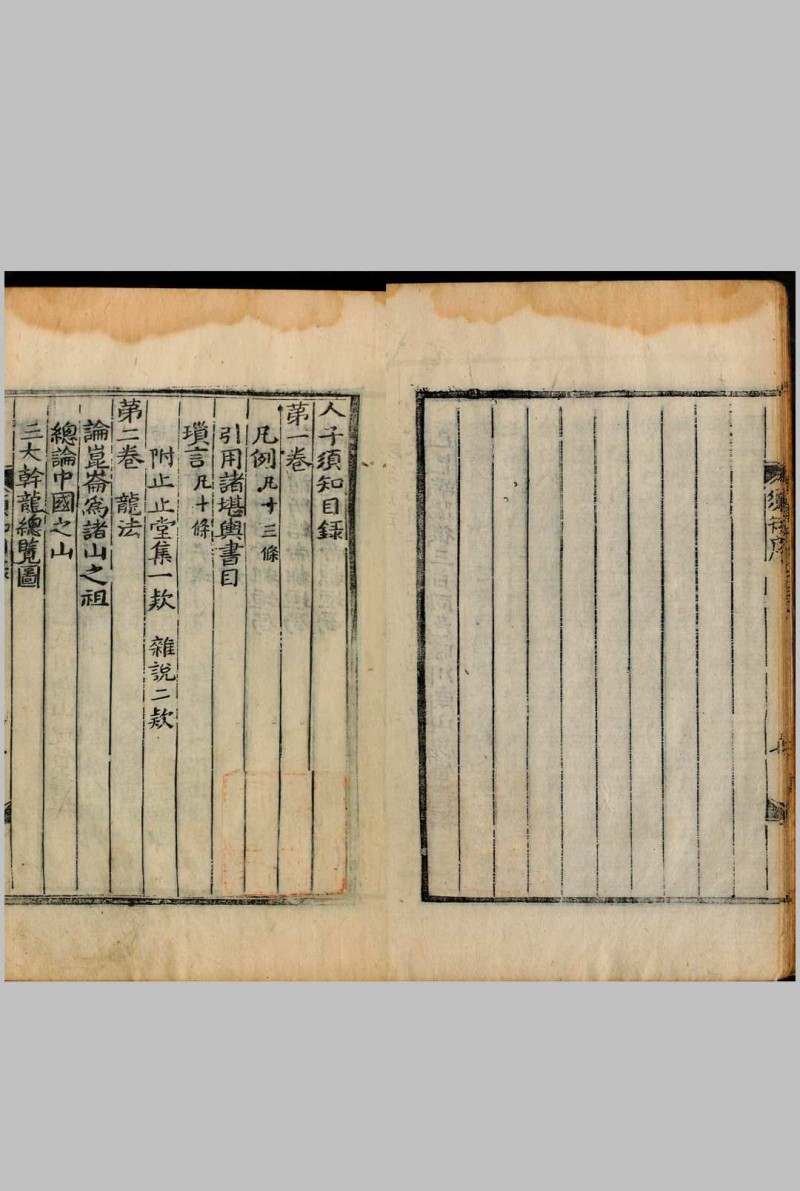 須知序
人子須知目録
第一卷
凡例凡十三條
引用諸堪輿書目
瑣言凡十條
附止止堂集一款 雜説二款
第二卷 龍法
論崑崙爲諸山之祖
總論中國之山
三大幹龍總覽圖